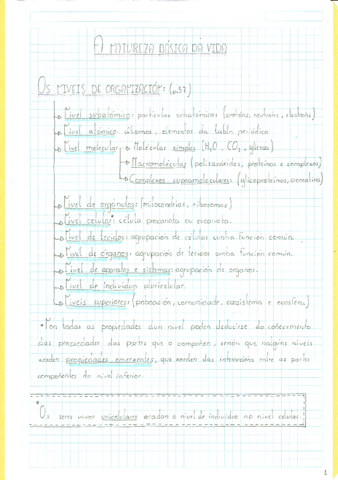 A NATUREZA BÁSICA DA VIDA
OS NIVEIS DE ORGANIZACIÓN: (p.57)
Nivel subatómico: partículas subatómicas (protóns, neutróns, electróns)
Nivel atómico: átomos, elementos da táboa periódica.
Nivel molecular Moléculas simples (H₂O, CO₂, glicosa)
Macromoléculas (polisacáridos, proteínas e complexos)
Complexos supramoleculares: (glicoproteínas, cromatina)
Nivel de orgánulos: (mitocondrias, ribosomas)
Nivel celular* célula procariota ou eucariota.
Nivel de tecidos: agrupación de células cunha función común.
Nivel de órganos: agrupación de tecidos cunha función común.
Nivel de aparatos e sistemas: agrupación de órganos.
Nivel de individuo pluricelular.
Niveis superiores: (poboación, comunidade, ecosistema e ecosfera)
• Non todas as propiedades dun nivel poden deducirse do coñecemento
das propiedades das partes que o compoñen, senón que nalgúns niveis
xorden propiedades emerxentes, que xorden das interaccións entre as partes
compoñentes do nivel inferior.
*Os seres vivos unicelulares acadan o nivel de individuo no nivel celular.
1